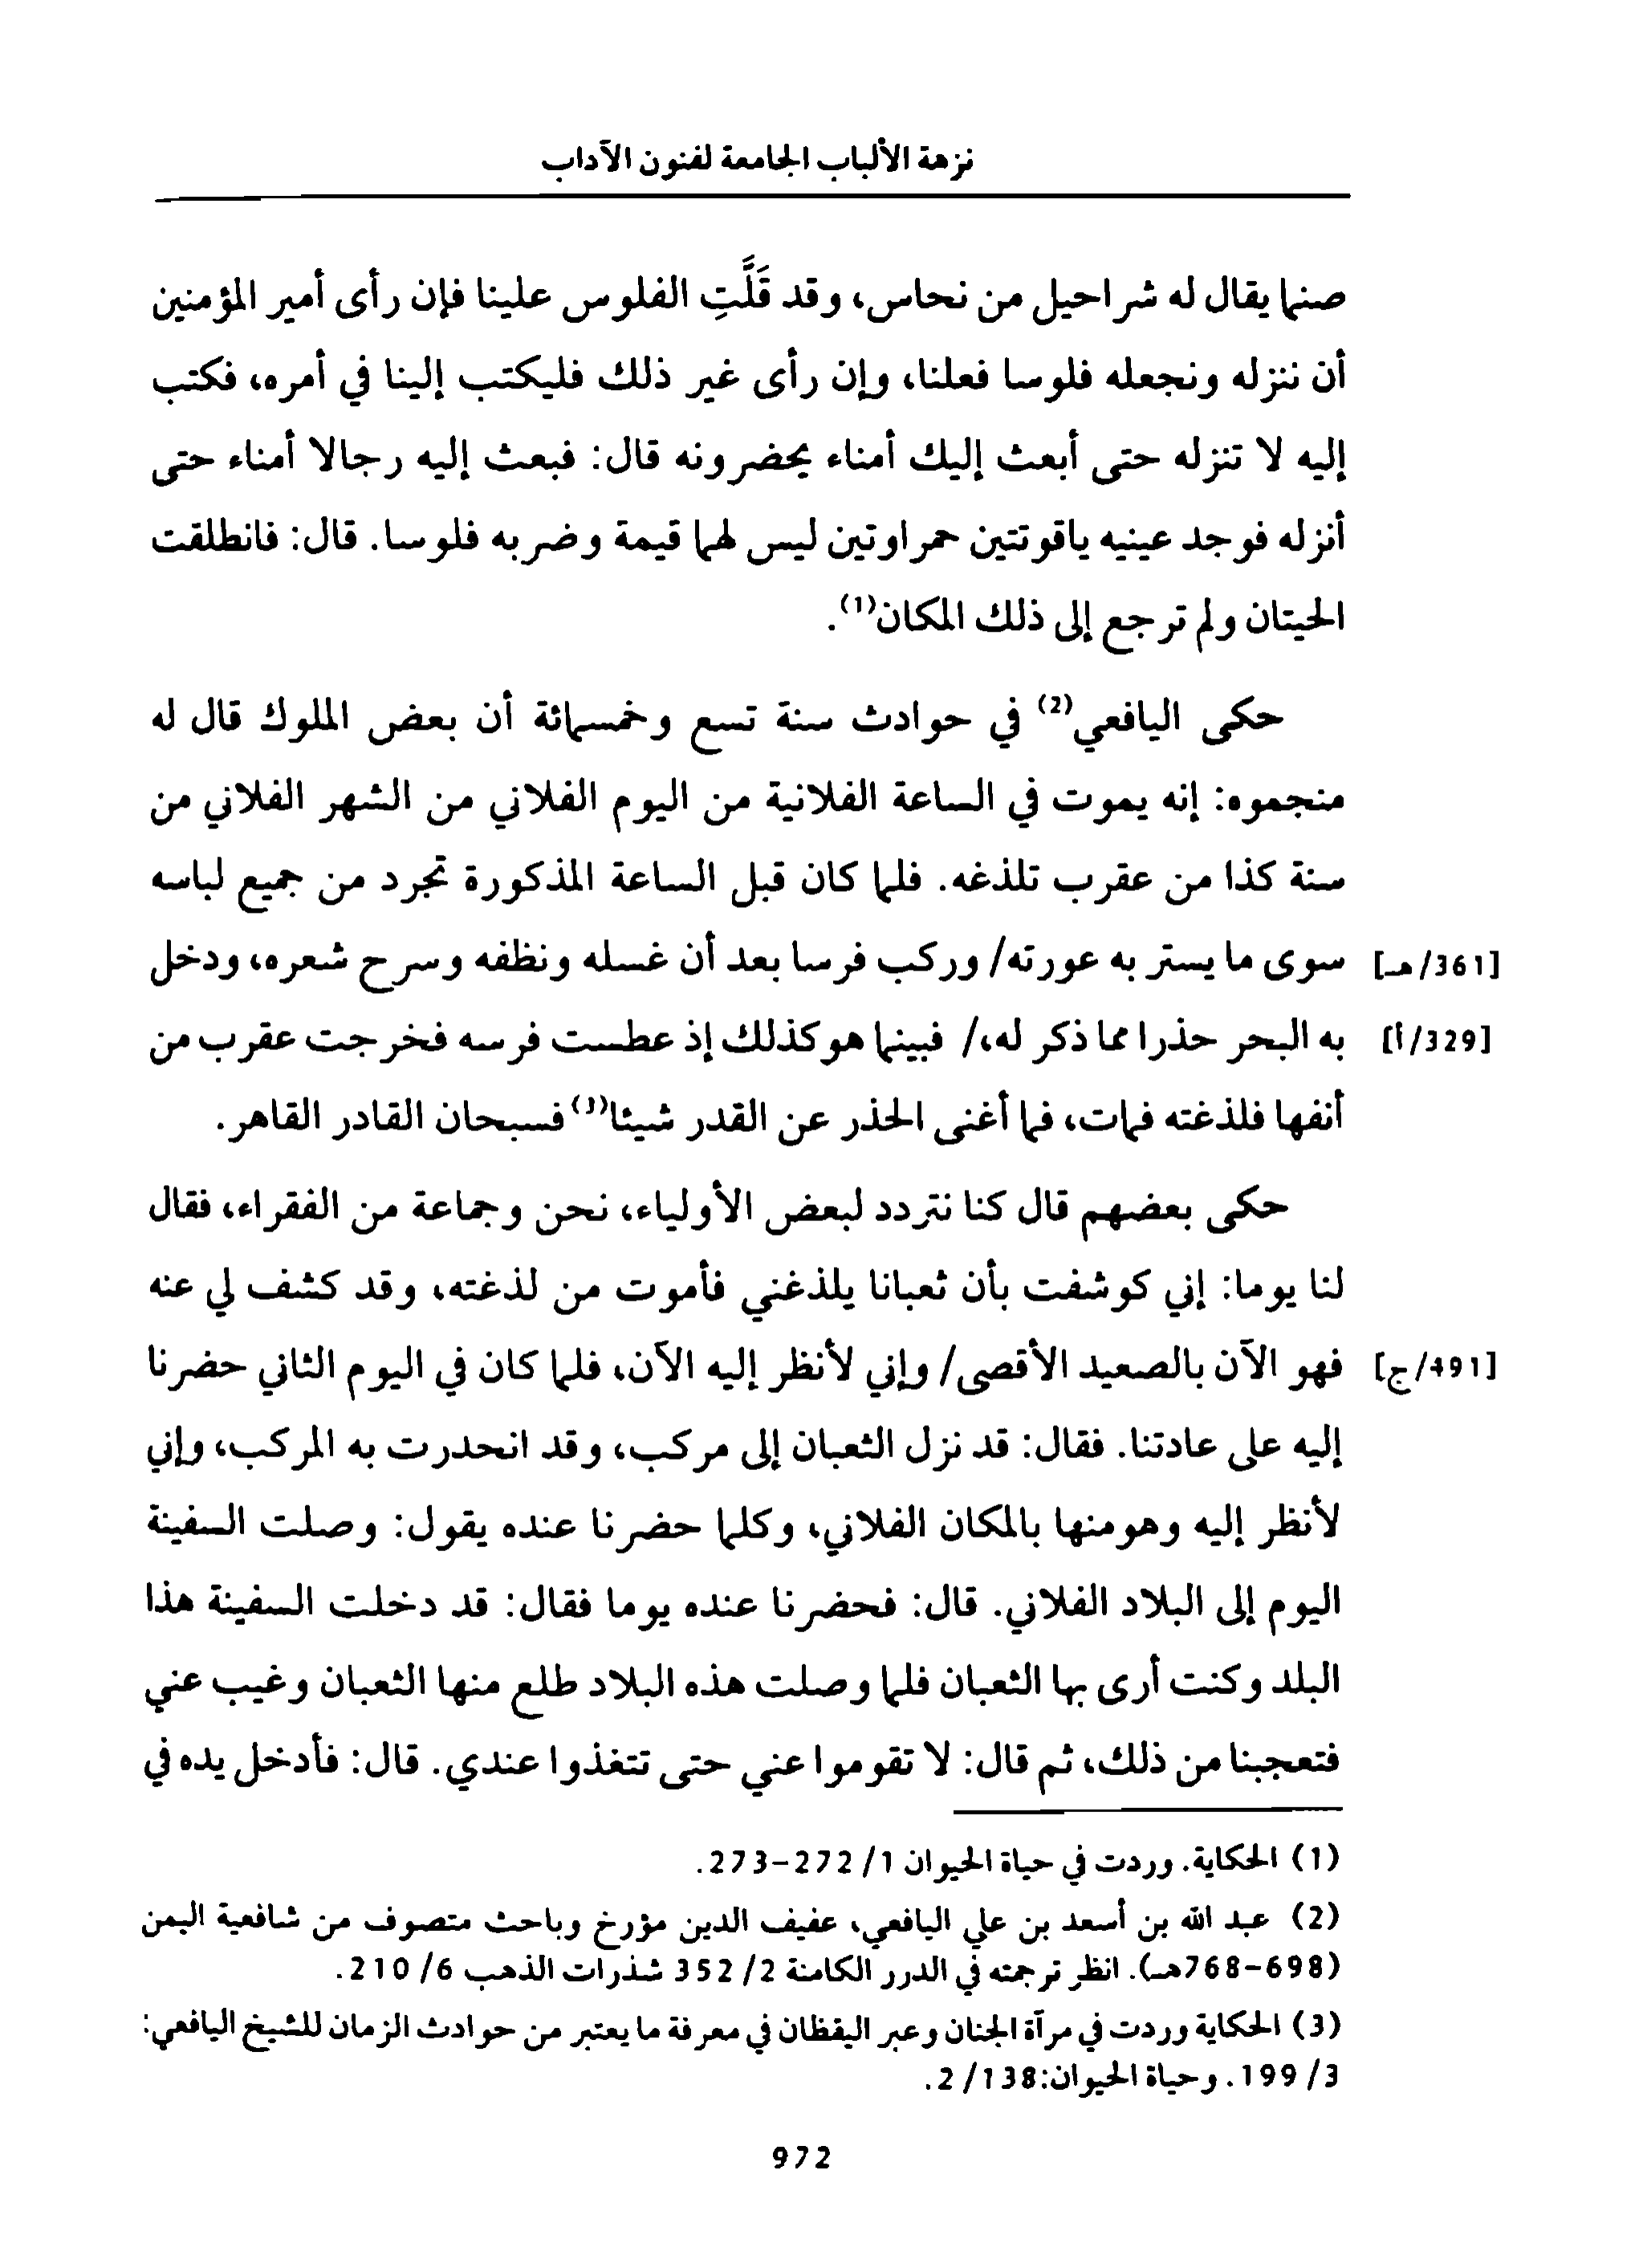 نزهة الألباب الجامعة لفنون الآداب
صنما يقال له شراحيل من نحاس، وقد قَلَّتِ الفلوس علينا فإن رأى أمير المؤمنين
أن ننزله ونجعله فلوسا فعلنا، وإن رأى غير ذلك فليكتب إلينا في أمره، فكتب
إليه لا تنزله حتى أبعث إليك أمناء يحضرونه قال: فبعث إليه رجالا أمناء حتى
أنزله فوجد عينيه ياقوتتين حمراوتين ليس لهما قيمة وضربه فلوسا. قال: فانطلقت
الحيتان ولم ترجع إلى ذلك المكان(1).
حكى اليافعي(2) في حوادث سنة تسع وخمسمائة أن بعض الملوك قال له
منجموه: إنه يموت في الساعة الفلانية من اليوم الفلاني من الشهر الفلاني من
سنة كذا من عقرب تلذغه. فلما كان قبل الساعة المذكورة تجرد من جميع لباسه
[361/هـ] سوى ما يستر به عورته/ وركب فرسا بعد أن غسله ونظفه وسرح شعره، ودخل
[329/أ] به البحر حذرا مما ذكر له،/ فبينما هو كذلك إذ عطست فرسه فخرجت عقرب من
أنفها فلذغته فمات، فما أغنى الحذر عن القدر شيئا(3) فسبحان القادر القاهر.
حكى بعضهم قال كنا نتردد لبعض الأولياء، نحن وجماعة من الفقراء، فقال
لنا يوما: إني كوشفت بأن ثعبانا يلذغني فأموت من لذغته، وقد كشف لي عنه
[491/ج] فهو الآن بالصعيد الأقصى/ وإني لأنظر إليه الآن، فلما كان في اليوم الثاني حضرنا
إليه على عادتنا. فقال: قد نزل الثعبان إلى مركب، وقد انحدرت به المركب، وإني
لأنظر إليه وهو منها بالمكان الفلاني، وكلما حضرنا عنده يقول: وصلت السفينة
اليوم إلى البلاد الفلاني. قال: فحضرنا عنده يوما فقال: قد دخلت السفينة هذا
البلد وكنت أرى بها الثعبان فلما وصلت هذه البلاد طلع منها الثعبان وغيب عني
فتعجبنا من ذلك، ثم قال: لا تقوموا عني حتى تتغذوا عندي. قال: فأدخل يده في
(1) الحكاية. وردت في حياة الحيوان 1/ 272-273.
(2) عبد الله بن أسعد بن علي اليافعي، عفيف الدين مؤرخ وباحث متصوف من شافعية اليمن
(698-768هـ). انظر ترجمته في الدرر الكامنة 2/ 352 شذرات الذهب 6/ 210.
(3) الحكاية وردت في مرآة الجنان وعبر اليقظان في معرفة ما يعتبر من حوادث الزمان للشيخ اليافعي:
3/ 199. وحياة الحيوان:138/ 2.
972